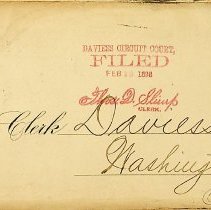 DAVIESS CIRCUIT COURT,
FILED
FEB 1898
Thos. D. Slimp
CLERK.
Clerk Daviess
Washing